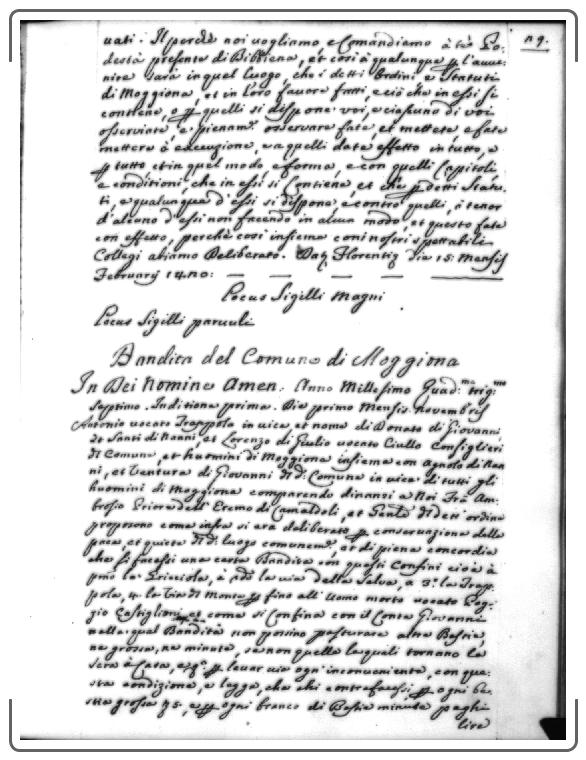 n 9.
vati. Il perchè noi vogliamo e Comandiamo à tè Po-
destà presente di Bibbiena, et così à qualunque per l'avve-
nire sarà in quel luogo, che i detti Ordini e Statuti
di Moggiona, et in loro favore fatti, e ciò che in essi si
contiene, o per quelli si dispone voi, e ciascuno di voi
osserviate, e pienam.te osservare fate, et mettete, e fate
mettere à executione, e a quelli date effetto in tutto, e
per tutto et in quel modo, e forma, e con quelli Capitoli,
e conditioni, che in essi si Contiene, et che per detti Statu-
ti, e qualunque d'essi si dispone, e contro quelli, à tenor
d'alcuno d'essi non facendo in alcun modo, et questo fate
con effetto, perchè così insieme coni nostri spettabili
Collegi abiamo Deliberato. Dat. Florentiæ Die 15: Mensis
Februarij 14
Locus Sigilli Magni
Locus Sigilli parvuli
Bandita del Comune di Moggiona
In Dei Nomine Amen. Anno Millesimo Quad.mo trig.mo
Septimo. Inditione prima. Die primo Mensis Novembris
Antonio vocato Trappola in vice et nome di Donato di Giovanni
et Santi di Nanni, et Lorenzo di Giulio vocato Ciullo Consiglieri
di Comune, et huomini di Moggiona insieme con Agnolo di Nan
ni, et Ventura di Giovanni di d.° Comune in vice di tutti gli
huomini di Moggiona comparendo dinanzi a Noi Frà Am-
brosio Priore dell'Eremo di Camaldoli, et Gen.le di dett'ordine
proposono come infra si era deliberato per conservazione della
pace, et quiete di d.° luogo comunem.te, et di piena concordia
che si facessi una certa Bandita con questi Confini cioè à
p.mo la Pricciola, à 2.do la via della Selva, a 3.° la Trap-
pola, 4. la Via di Monte per fino all'Uomo morto vocato Pog-
gio Castiglioni, et come si Confina con il Conte Giovanni
nella qual Bandita non possino pasturare altre Bestie,
ne grossa, ne minuta, se non quelle le quali tornano la
sera à Casa, e per levar via ogn'inconveniente, con que-
sta condizione, e legge, che chi contrafacessi per ogni be-
stia grossa 5., e per ogni branco di Bestie minute paghi
lire